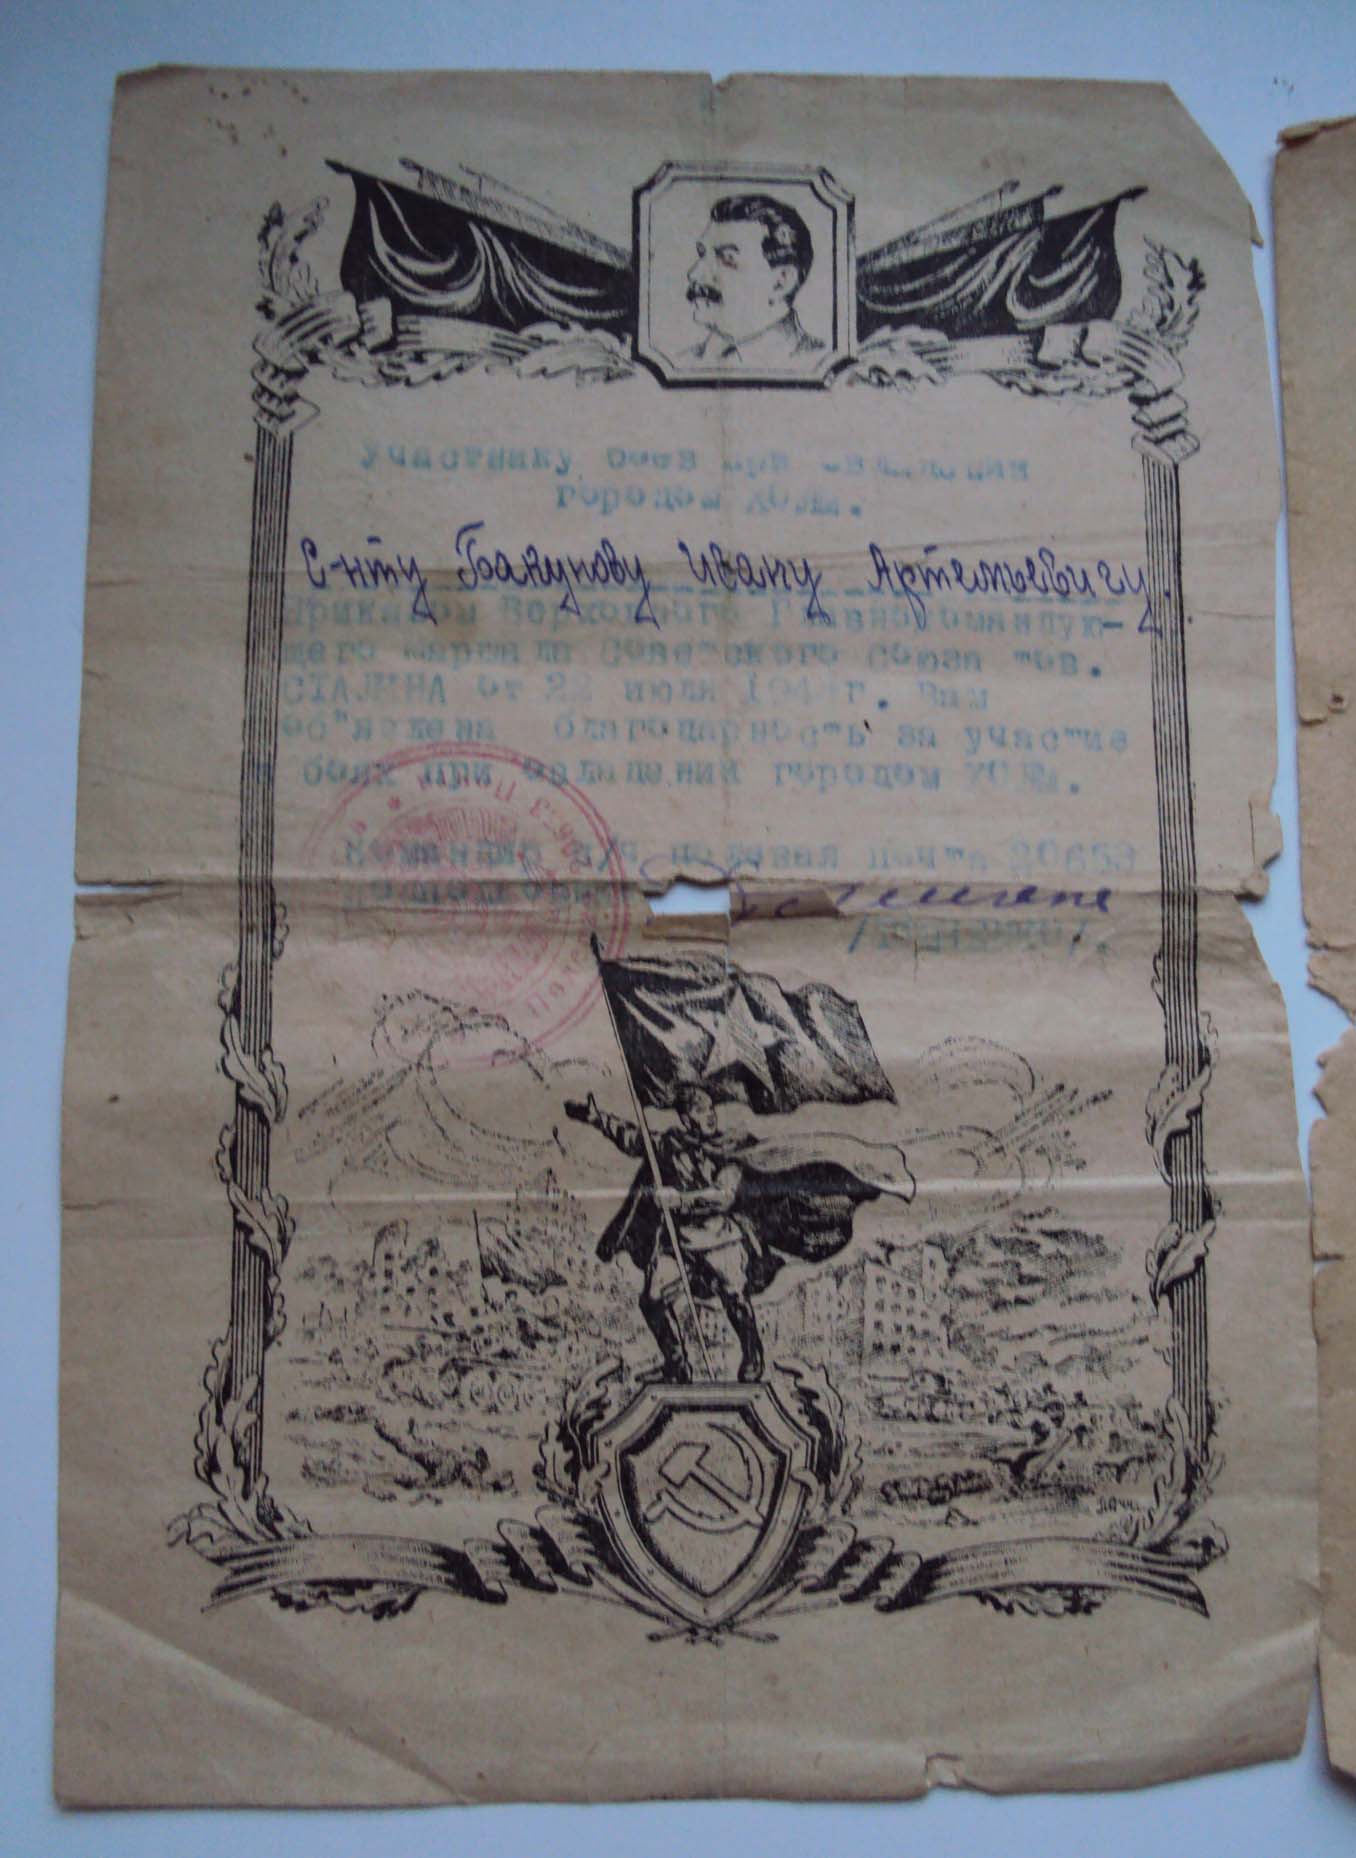 Участнику боев при овладении
городом ХОЛМ.
С-нту Бакунову Ивану Артемьевичу.
Приказом Верховного Главнокомандую-
щего маршала Советского Союза тов.
СТАЛИНА от 22 июля 194 г. Вам
об"явлена благодарность за участие
в боях при овладении городом ХОЛМ.
Командир в/ч полевая почта 20653